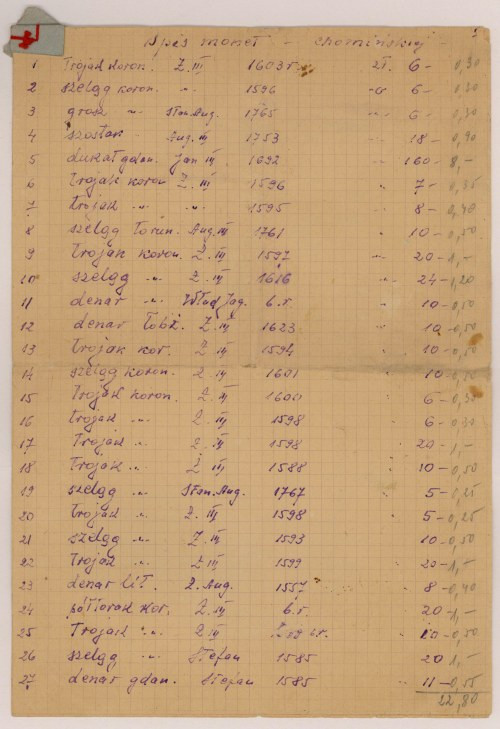 Spis monet - Chomińskiej -
1 Trojak koron. Z. III 1603 r. zł. 6 - 0,30
2 szeląg koron. " 1596 " 6 - 0,30
3 grosz " Stan. Aug. 1765 " 6 - 0,30
4 szóstak Aug. III 1753 " 18 - 0,90
5 dukat gdan. Jan III 1692 " 160 - 8,-
6 trojak koron Z. III 1596 " 7 - 0,35
7 trojak " " 1595 " 8 - 0,40
8 szeląg Toruń. Aug. III 1761 " 10 - 0,50
9 trojak koron. Z. III 1597 " 20 - 1,-
10 szeląg " Z. III 1616 " 24 - 1,20
11 denar " Wład. Jag. b.r. " 10 - 0,50
12 denar łobż. Z. III 1623 " 10 - 0,50
13 trojak kor. Z III 1594 " 10 - 0,50
14 szeląg koron. Z III 1601 " 10 - 0,50
15 Trojak koron. Z. III 1601 6 - 0,30
16 trojak " Z III 1598 6 - 0,30
17 Trojak " Z III 1598 20 - 1,-
18 Trojak " Z III 1588 10 - 0,50
19 szeląg " Stan. Aug. 1767 5 - 0,25
20 trojak " Z. III 1598 5 - 0,25
21 szeląg " Z. III 1593 10 - 0,50
22 Trojak " Z III 1599 20 - 1,-
23 denar lit. Z. Aug. 1557 8 - 0,40
24 półtorak kor. Z. III b.r. 20 - 1,-
25 Trojak " Z III 10 - 0,50
26 szeląg " Stefan 1585 20 1,-
27 denar gdan. Stefan 1585 " 11 - 0,55
22,80